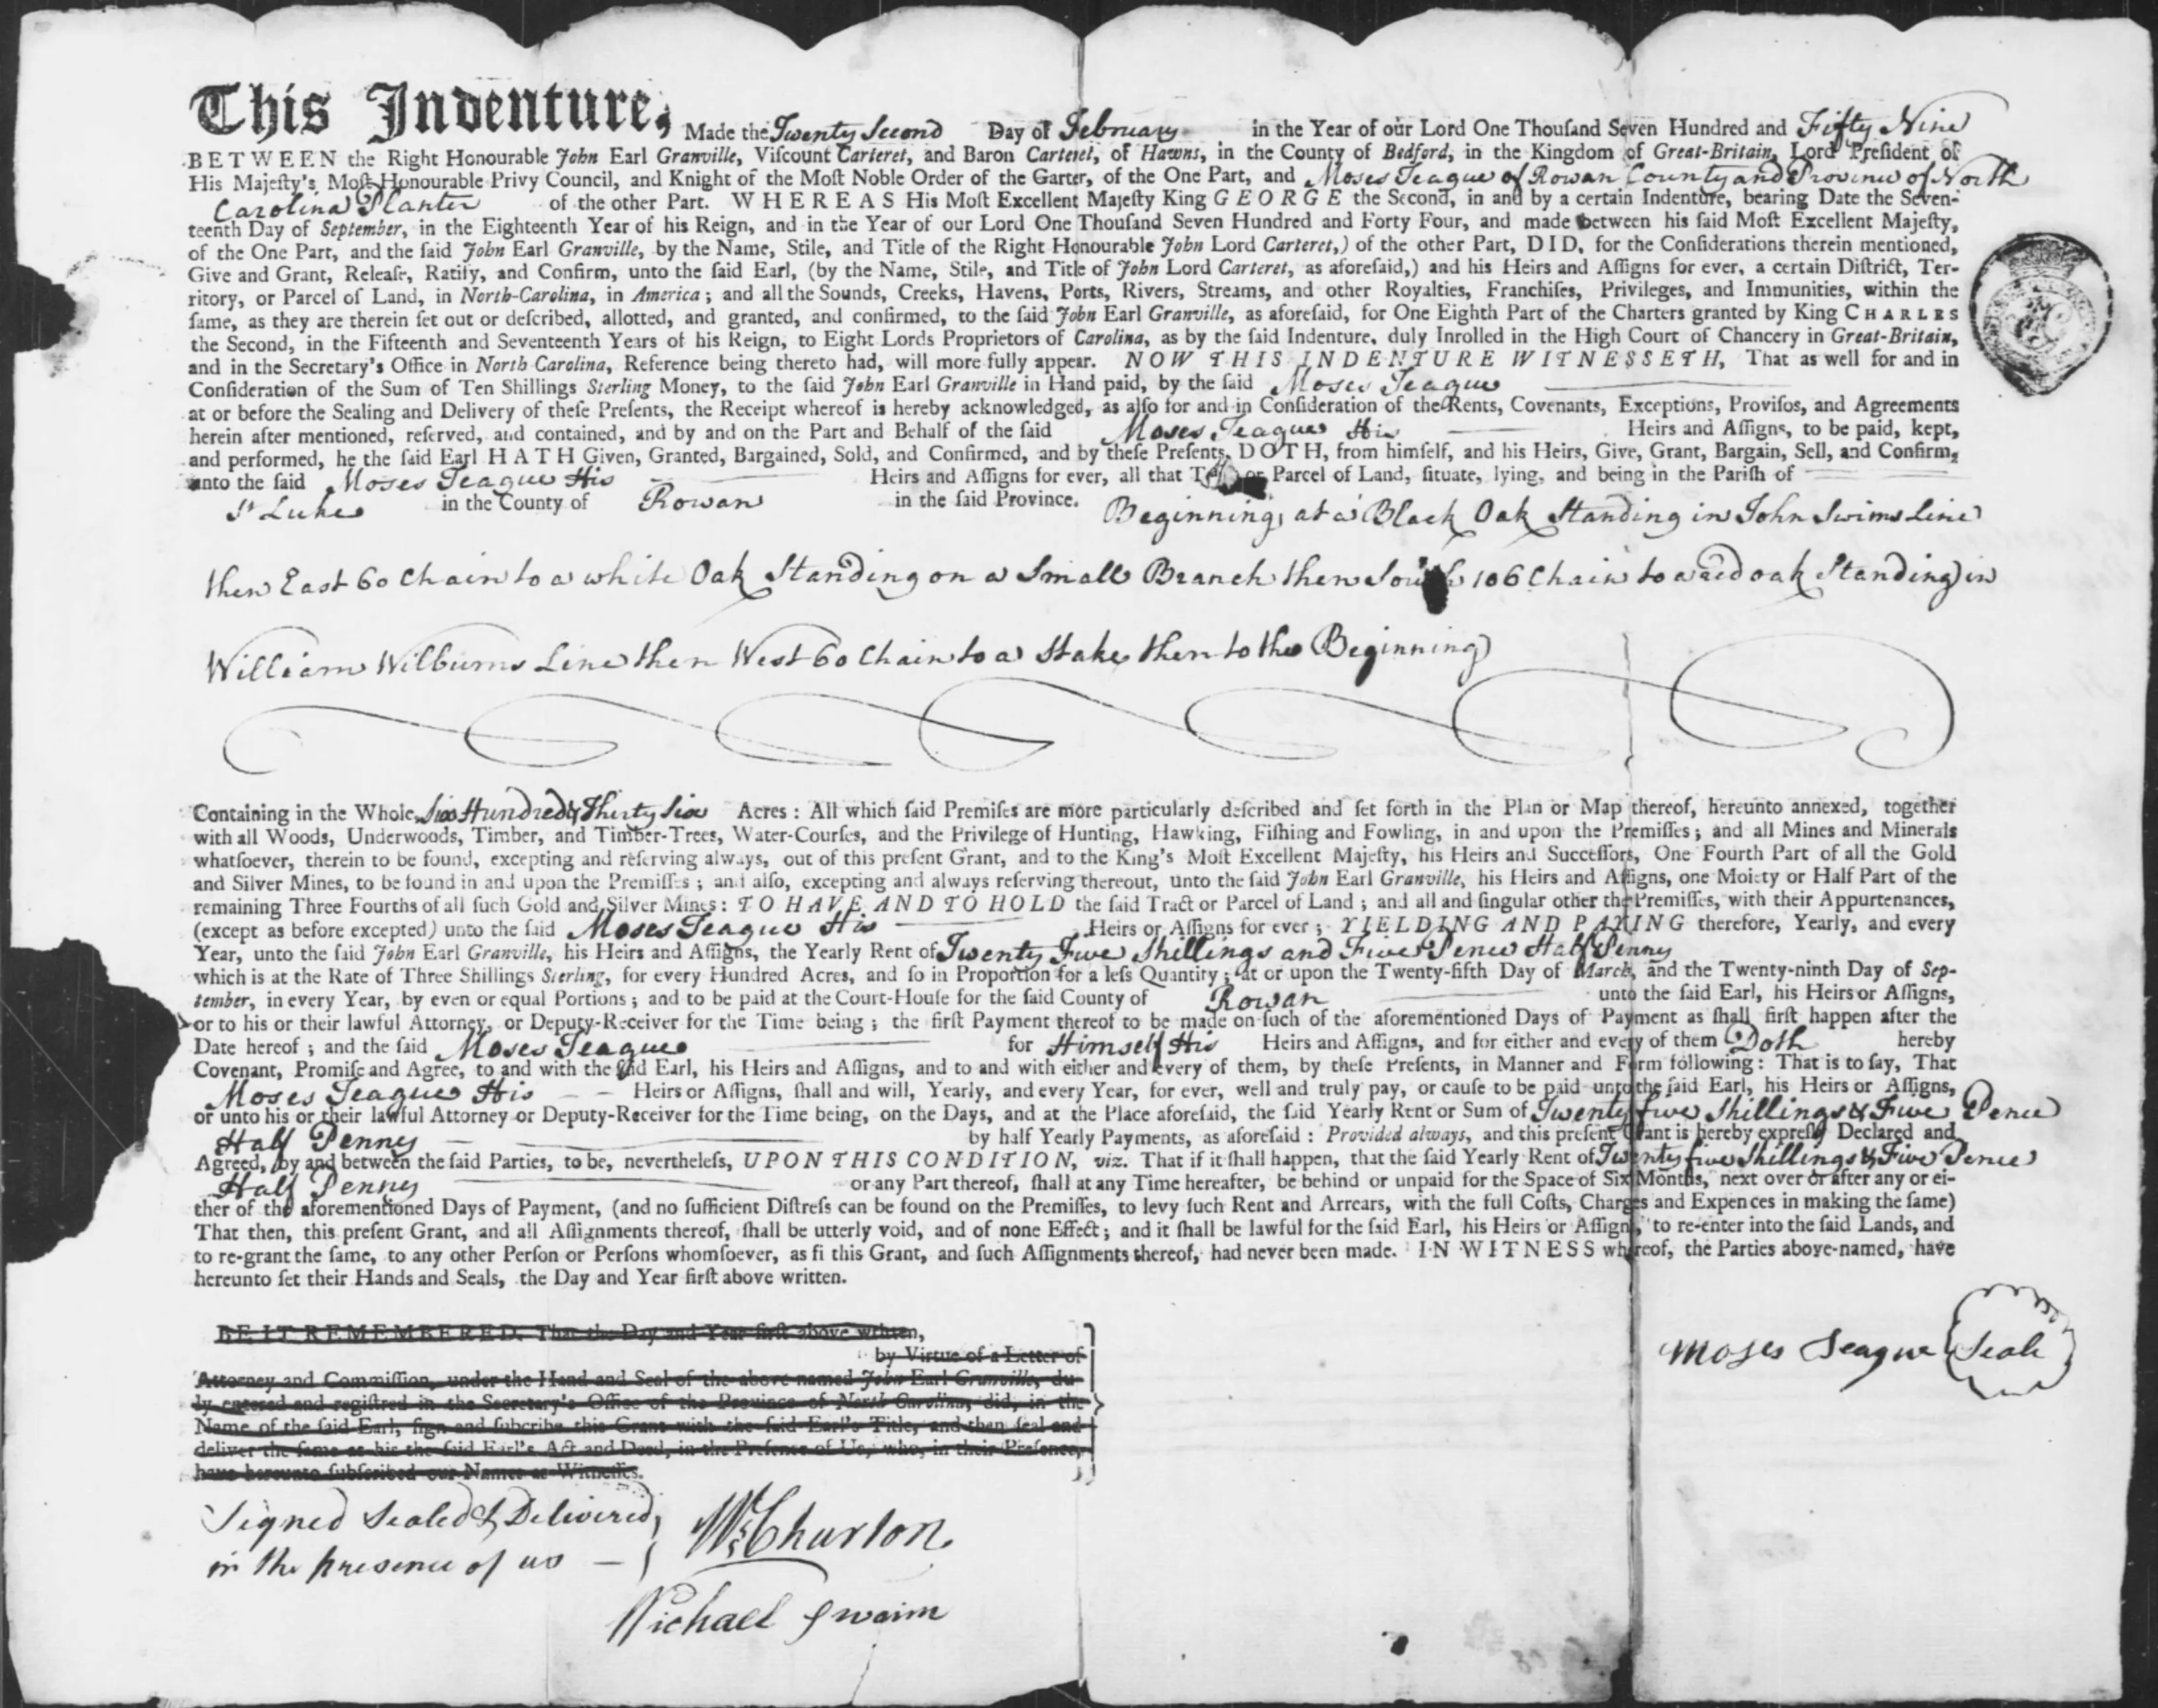 This Indenture, Made the Twenty Second Day of February in the Year of our Lord One Thouſand Seven Hundred and Fifty Nine
BETWEEN the Right Honourable John Earl Granville, Viſcount Carteret, and Baron Carteret, of Hawns, in the County of Bedford, in the Kingdom of Great-Britain, Lord Preſident of
His Majeſty's Moſt Honourable Privy Council, and Knight of the Moſt Noble Order of the Garter, of the One Part, and Moses Teague of Rowan County and Province of North
Carolina Planter of the other Part. WHEREAS His Moſt Excellent Majeſty King GEORGE the Second, in and by a certain Indenture, bearing Date the Seven-
teenth Day of September, in the Eighteenth Year of his Reign, and in the Year of our Lord One Thouſand Seven Hundred and Forty Four, and made between his ſaid Moſt Excellent Majeſty,
of the One Part, and the ſaid John Earl Granville, by the Name, Stile, and Title of the Right Honourable John Lord Carteret,) of the other Part, DID, for the Conſiderations therein mentioned,
Give and Grant, Releaſe, Ratify, and Confirm, unto the ſaid Earl, (by the Name, Stile, and Title of John Lord Carteret, as aforeſaid,) and his Heirs and Aſſigns for ever, a certain Diſtrict, Ter-
ritory, or Parcel of Land, in North-Carolina, in America; and all the Sounds, Creeks, Havens, Ports, Rivers, Streams, and other Royalties, Franchiſes, Privileges, and Immunities, within the
ſame, as they are therein ſet out or deſcribed, allotted, and granted, and confirmed, to the ſaid John Earl Granville, as aforeſaid, for One Eighth Part of the Charters granted by King CHARLES
the Second, in the Fifteenth and Seventeenth Years of his Reign, to Eight Lords Proprietors of Carolina, as by the ſaid Indenture, duly Inrolled in the High Court of Chancery in Great-Britain,
and in the Secretary's Office in North Carolina, Reference being thereto had, will more fully appear. NOW THIS INDENTURE WITNESSETH, That as well for and in
Conſideration of the Sum of Ten Shillings Sterling Money, to the ſaid John Earl Granville in Hand paid, by the ſaid Moses Teague
at or before the Sealing and Delivery of theſe Preſents, the Receipt whereof is hereby acknowledged, as alſo for and in Conſideration of the Rents, Covenants, Exceptions, Proviſos, and Agreements
herein after mentioned, reſerved, and contained, and by and on the Part and Behalf of the ſaid Moses Teague His Heirs and Aſſigns, to be paid, kept,
and performed, he the ſaid Earl HATH Given, Granted, Bargained, Sold, and Confirmed, and by theſe Preſents, DOTH, from himſelf, and his Heirs, Give, Grant, Bargain, Sell, and Confirm,
unto the ſaid Moses Teague His Heirs and Aſſigns for ever, all that or Parcel of Land, ſituate, lying, and being in the Pariſh of
St Lukes in the County of Rowan in the ſaid Province. Beginning at a Black Oak Standing in John Swims Line
then East 60 Chain to a white Oak Standing on a Small Branch then South 106 Chain to a red oak Standing in
William Wilburns Line then West 60 Chain to a Stake then to the Beginning
Containing in the Whole, Six Hundred & Thirty Six Acres: All which ſaid Premiſes are more particularly deſcribed and ſet forth in the Plan or Map thereof, hereunto annexed, together
with all Woods, Underwoods, Timber, and Timber-Trees, Water-Courſes, and the Privilege of Hunting, Hawking, Fiſhing and Fowling, in and upon the Premiſſes; and all Mines and Minerals
whatſoever, therein to be found, excepting and reſerving always, out of this preſent Grant, and to the King's Moſt Excellent Majeſty, his Heirs and Succeſſors, One Fourth Part of all the Gold
and Silver Mines, to be found in and upon the Premiſſes; and alſo, excepting and always reſerving thereout, unto the ſaid John Earl Granville, his Heirs and Aſſigns, one Moiety or Half Part of the
remaining Three Fourths of all ſuch Gold and Silver Mines: TO HAVE AND TO HOLD the ſaid Tract or Parcel of Land; and all and ſingular other the Premiſſes, with their Appurtenances,
(except as before excepted) unto the ſaid Moses Teague His Heirs or Aſſigns for ever; YIELDING AND PAYING therefore, Yearly, and every
Year, unto the ſaid John Earl Granville, his Heirs and Aſſigns, the Yearly Rent of Twenty Five Shillings and Five Pence Half Penny
which is at the Rate of Three Shillings Sterling, for every Hundred Acres, and ſo in Proportion for a leſs Quantity; at or upon the Twenty-fifth Day of March, and the Twenty-ninth Day of Sep-
tember, in every Year, by even or equal Portions; and to be paid at the Court-Houſe for the ſaid County of Rowan unto the ſaid Earl, his Heirs or Aſſigns,
or to his or their lawful Attorney, or Deputy-Receiver for the Time being; the firſt Payment thereof to be made on ſuch of the aforementioned Days of Payment as ſhall firſt happen after the
Date hereof; and the ſaid Moses Teague for Himself His Heirs and Aſſigns, and for either and every of them Doth hereby
Covenant, Promiſe and Agree, to and with the ſaid Earl, his Heirs and Aſſigns, and to and with either and every of them, by theſe Preſents, in Manner and Form following: That is to ſay, That
Moses Teague His Heirs or Aſſigns, ſhall and will, Yearly, and every Year, for ever, well and truly pay, or cauſe to be paid unto the ſaid Earl, his Heirs or Aſſigns,
or unto his or their lawful Attorney or Deputy-Receiver for the Time being, on the Days, and at the Place aforeſaid, the ſaid Yearly Rent or Sum of Twenty five Shillings & Five Pence
Half Penny by half Yearly Payments, as aforeſaid: Provided always, and this preſent Grant is hereby expreſsly Declared and
Agreed, by and between the ſaid Parties, to be, nevertheleſs, UPON THIS CONDITION, viz. That if it ſhall happen, that the ſaid Yearly Rent of Twenty five Shillings & Five Pence
Half Penny or any Part thereof, ſhall at any Time hereafter, be behind or unpaid for the Space of Six Months, next over or after any or ei-
ther of the aforementioned Days of Payment, (and no ſufficient Diſtreſs can be found on the Premiſſes, to levy ſuch Rent and Arrears, with the full Coſts, Charges and Expences in making the ſame)
That then, this preſent Grant, and all Aſſignments thereof, ſhall be utterly void, and of none Effect; and it ſhall be lawful for the ſaid Earl, his Heirs or Aſſigns, to re-enter into the ſaid Lands, and
to re-grant the ſame, to any other Perſon or Perſons whomſoever, as fi this Grant, and ſuch Aſſignments thereof, had never been made. IN WITNESS whereof, the Parties above-named, have
hereunto ſet their Hands and Seals, the Day and Year firſt above written.
BE IT REMEMBERED, That the Day and Year firſt above written,
by Virtue of a Letter of
Attorney and Commiſſion, under the Hand and Seal of the above named John Earl Granville, du-
ly entered and regiſtred in the Secretary's Office of the Province of North Carolina, did, in the
Name of the ſaid Earl, ſign and ſubſcribe this Grant with the ſaid Earl's Title, and then ſeal and
deliver the ſame as his the ſaid Earl's Act and Deed, in the Preſence of Us, who, in their Preſence,
have hereunto ſubſcribed our Names as Witneſſes.
Moses Teague Seale
Signed Sealed & Delivered
in the presence of us
Wm Churton
Michael Swaim